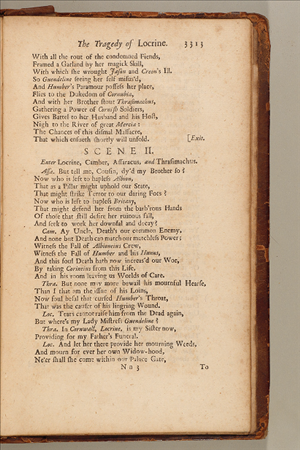 The Tragedy of Locrine. 3313
With all the rout of the condemned Fiends,
Framed a Garland by her magick Skill,
With which she wrought Jason and Creon's Ill.
So Guendeline seeing her self misus'd,
And Humber's Paramour possess her place,
Flies to the Dukedom of Cornubia,
And with her Brother stout Thrasimachus,
Gathering a Power of Cornish Soldiers,
Gives Battel to her Husband and his Host,
Nigh to the River of great Mercia:
The Chances of this dismal Massacre,
That which ensueth shortly will unfold. [Exit.
SCENE II.
Enter Locrine, Camber, Assaracus, and Thrasimachus.
Assa. But tell me, Cousin, dy'd my Brother so?
Now who is left to hapless Albion,
That as a Pillar might uphold our State,
That might strike Terror to our daring Foes?
Now who is left to hapless Britany,
That might defend her from the barb'rous Hands
Of those that still desire her ruinous fall,
And seek to work her downfal and decay?
Cam. Ay Uncle, Death's our common Enemy,
And none but Death can match our matchless Power;
Witness the Fall of Albioneus Crew,
Witness the Fall of Humber and his Hunns,
And this foul Death hath now increas'd our Woe,
By taking Corineius from this Life,
And in his room leaving us Worlds of Care.
Thra. But none may more bewail his mournful Hearse,
Than I that am the issue of his Loins,
Now foul befal that cursed Humber's Throat,
That was the causer of his lingring Wound.
Loc. Tears cannot raise him from the Dead again,
But where's my Lady Mistress Guendeline?
Thra. In Cornwall, Locrine, is my Sister now,
Providing for my Father's Funeral.
Loc. And let her there provide her mourning Weeds,
And mourn for ever her own Widow-hood,
Ne'er shall she come within our Palace Gate,
Nn 3 To